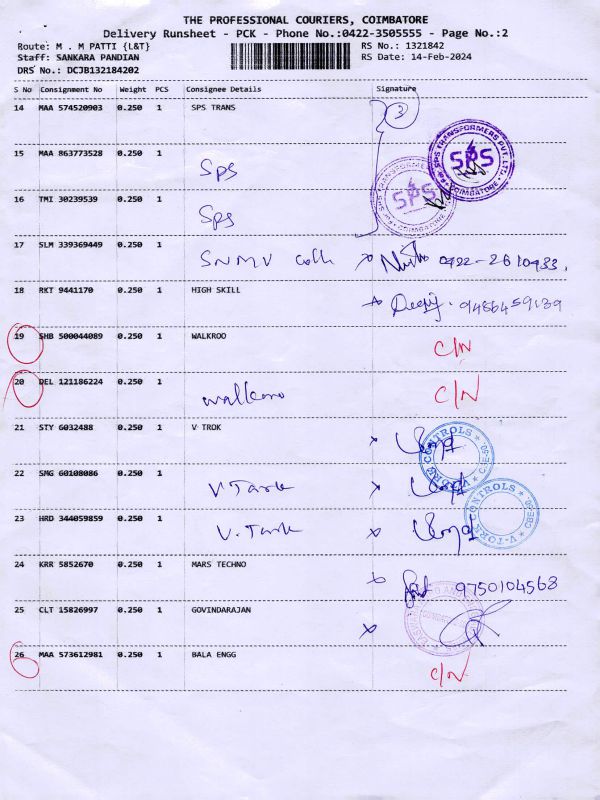 THE PROFESSIONAL COURIERS, COIMBATORE
Delivery Runsheet - PCK - Phone No.:0422-3505555 - Page No.:2
Route: M . M PATTI {L&T} RS No.: 1321842
Staff: SANKARA PANDIAN RS Date: 14-Feb-2024
DRS No.: DCJB132184202
S No Consignment No Weight PCS Consignee Details Signature
14 MAA 574520903 0.250 1 SPS TRANS 3
15 MAA 863773528 0.250 1 Sps
SPS
16 TMI 30239539 0.250 1 Sps
SPS
17 SLM 339369449 0.250 1 SNMV Coll 0422-2610933,
18 RKT 9441170 0.250 1 HIGH SKILL 9486459139
19 SHB 500044089 0.250 1 WALKROO C/N
20 DEL 121186224 0.250 1 walkaroo C/N
21 STY 6032488 0.250 1 V TROK
22 SMG 60108086 0.250 1 V Tark
V-TORK CONTROLS
23 HRD 344059859 0.250 1 V. Tark
V-TORK CONTROLS
24 KRR 5852670 0.250 1 MARS TECHNO 9750104568
25 CLT 15826997 0.250 1 GOVINDARAJAN
26 MAA 573612981 0.250 1 BALA ENGG C/N